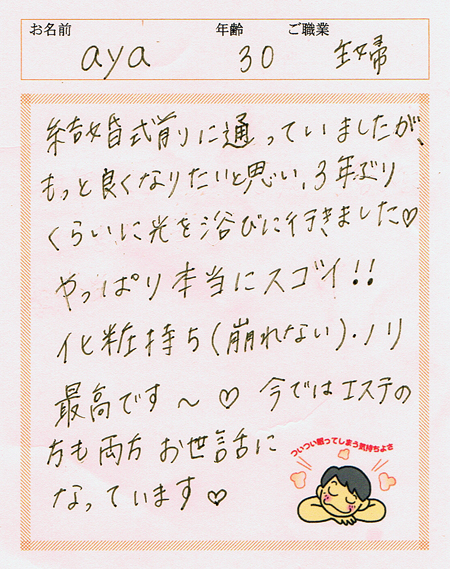 お名前 年齢 ご職業
aya 30 主婦
結婚式前りに通っていましたが、
もっと良くなりたいと思い、3年ぶり
くらいに光を浴びに行きました♡
やっぱり本当にスゴイ!!
化粧持ち(崩れない)・ノリ
最高です〜♡ 今ではエステの
方も両方お世話に
なっています♡
ついつい眠ってしまう気持ちよさ